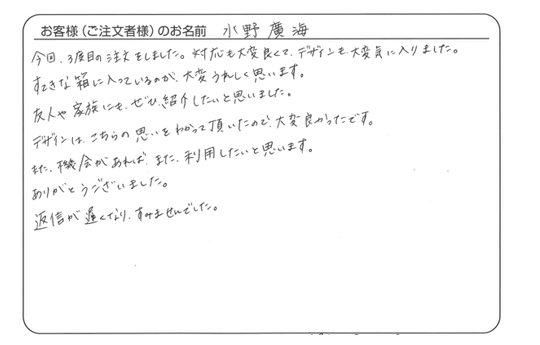 お客様（ご注文者様）のお名前 水野廣海
今回、3度目の注文をしました。対応も大変良くて、デザインも大変気に入りました。
すてきな箱に入っているのが、大変うれしく思います。
友人や家族にも、ぜひ紹介したいと思いました。
デザインは、こちらの思いをわかって頂いたので、大変良かったです。
また、機会があれば、また、利用したいと思います。
ありがとうございました。
返信が遅くなり、すみませんでした。